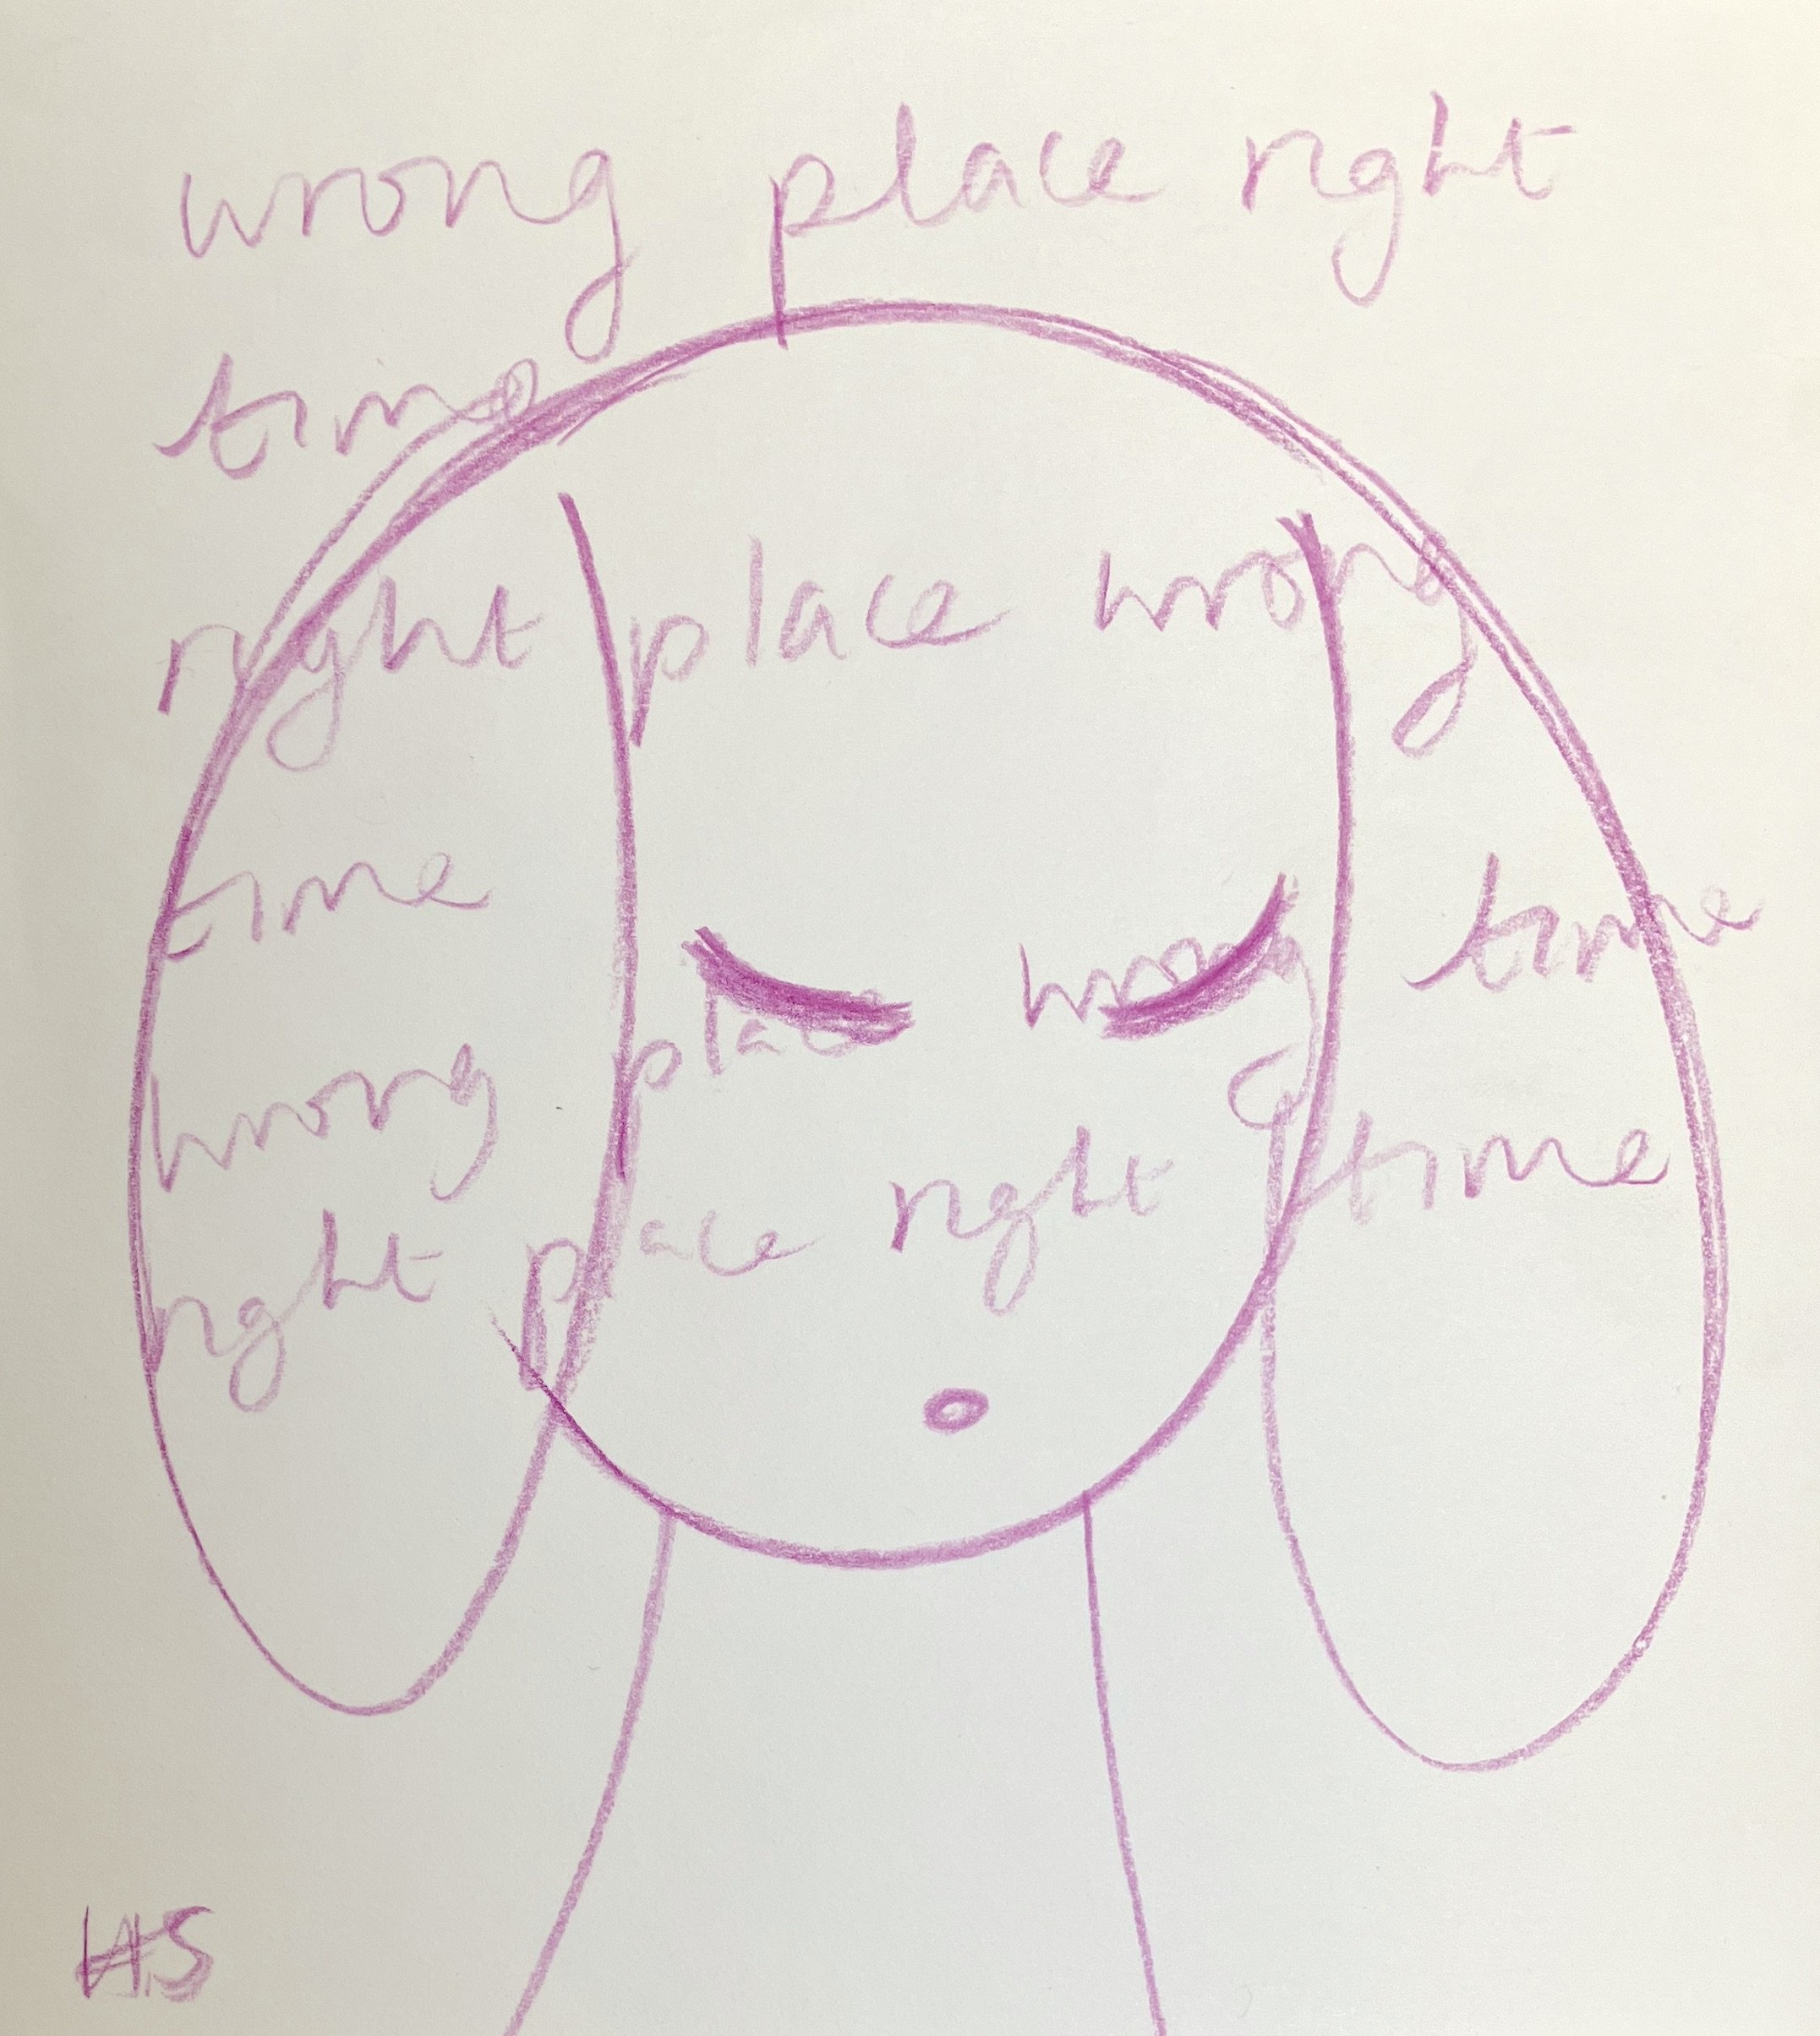 wrong place right
time
right place wrong
time
wrong place wrong time
right place right time
HS